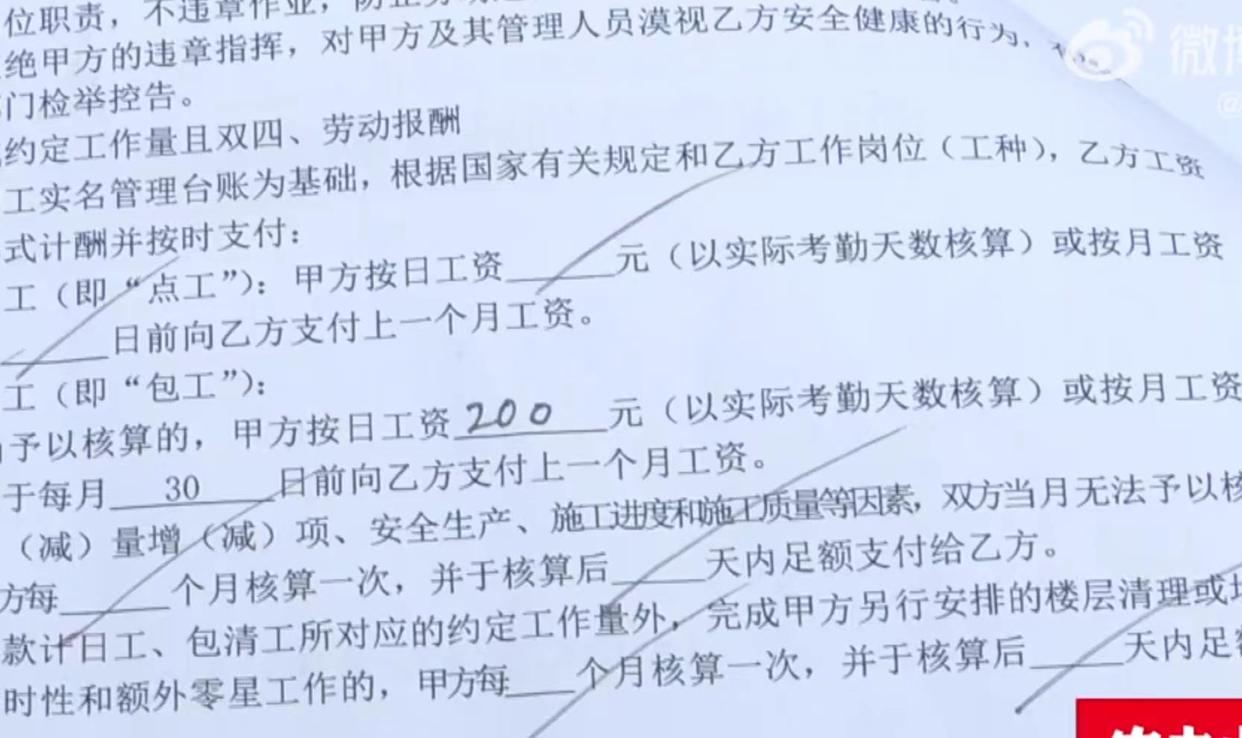 位职责，不违章作业，
绝甲方的违章指挥，对甲方及其管理人员漠视乙方安全健康的行为，
门检举控告。
约定工作量且双四、劳动报酬
工实名管理台账为基础，根据国家有关规定和乙方工作岗位（工种），乙方工资
式计酬并按时支付：
工（即“点工”）：甲方按日工资______元（以实际考勤天数核算）或按月工资
______日前向乙方支付上一个月工资。
工（即“包工”）：
予以核算的，甲方按日工资 200 元（以实际考勤天数核算）或按月工资
于每月 30 日前向乙方支付上一个月工资。
（减）量增（减）项、安全生产、施工进度和施工质量等因素，双方当月无法予以核
方每______个月核算一次，并于核算后_____天内足额支付给乙方。
款计日工、包清工所对应的约定工作量外，完成甲方另行安排的楼层清理或
时性和额外零星工作的，甲方每____个月核算一次，并于核算后_____天内足
微博